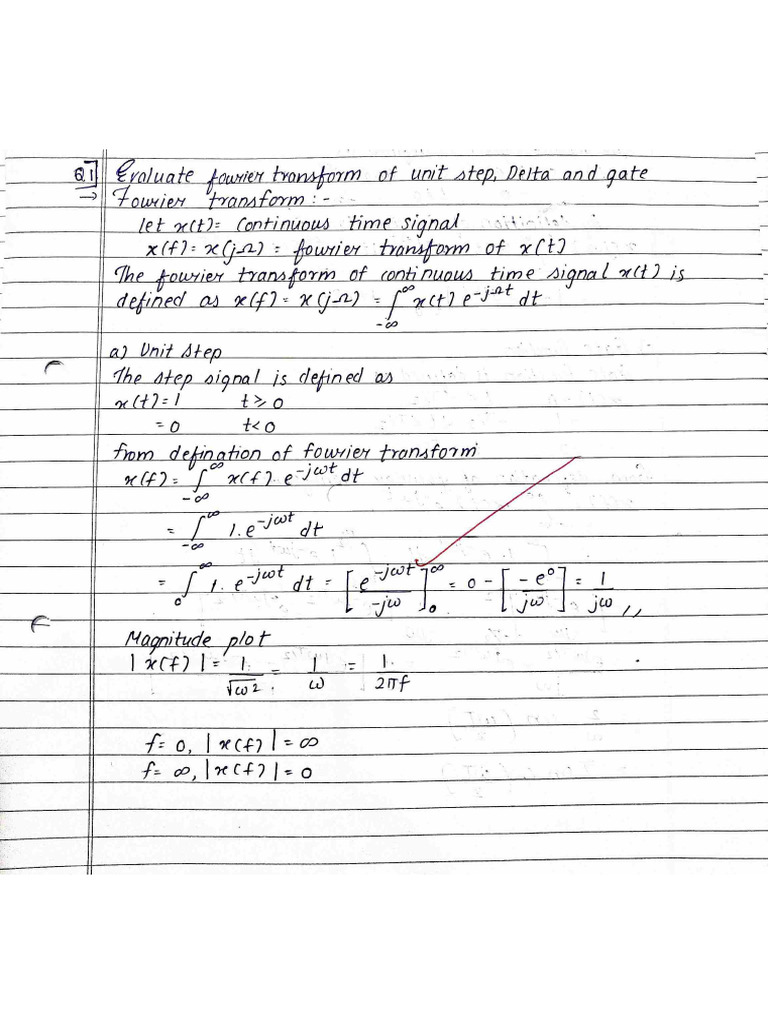 Q.1 Evaluate fourier transform of unit step, Delta and gate
→ Fourier transform :-
let x(t) = Continuous time signal
x(f) = x(jΩ) = fourier transform of x(t)
The fourier transform of continuous time signal x(t) is
defined as x(f) = x(jΩ) = ∫_{-∞}^{∞} x(t) e^{-jΩt} dt
a) Unit step
The step signal is defined as
x(t) = 1 t ≥ 0
= 0 t < 0
from defination of fourier transform
x(f) = ∫_{-∞}^{∞} x(f). e^{-jωt} dt
= ∫_{-∞}^{∞} 1. e^{-jωt} dt
= ∫_{0}^{∞} 1. e^{-jωt} dt = [e^{-jωt} / -jω]_{0}^{∞} = 0 - [-e^0 / jω] = 1 / jω ,,
Magnitude plot
|x(f)| = 1. / √ω2 = 1 / ω = 1. / 2πf
f = 0, |x(f)| = ∞
f = ∞, |x(f)| = 0